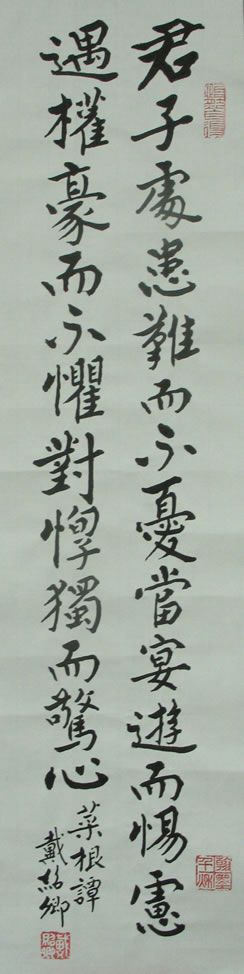 君子處患難而不憂當宴遊而惕慮
遇權豪而不懼對惸獨而驚心
菜根譚
戴紹卿